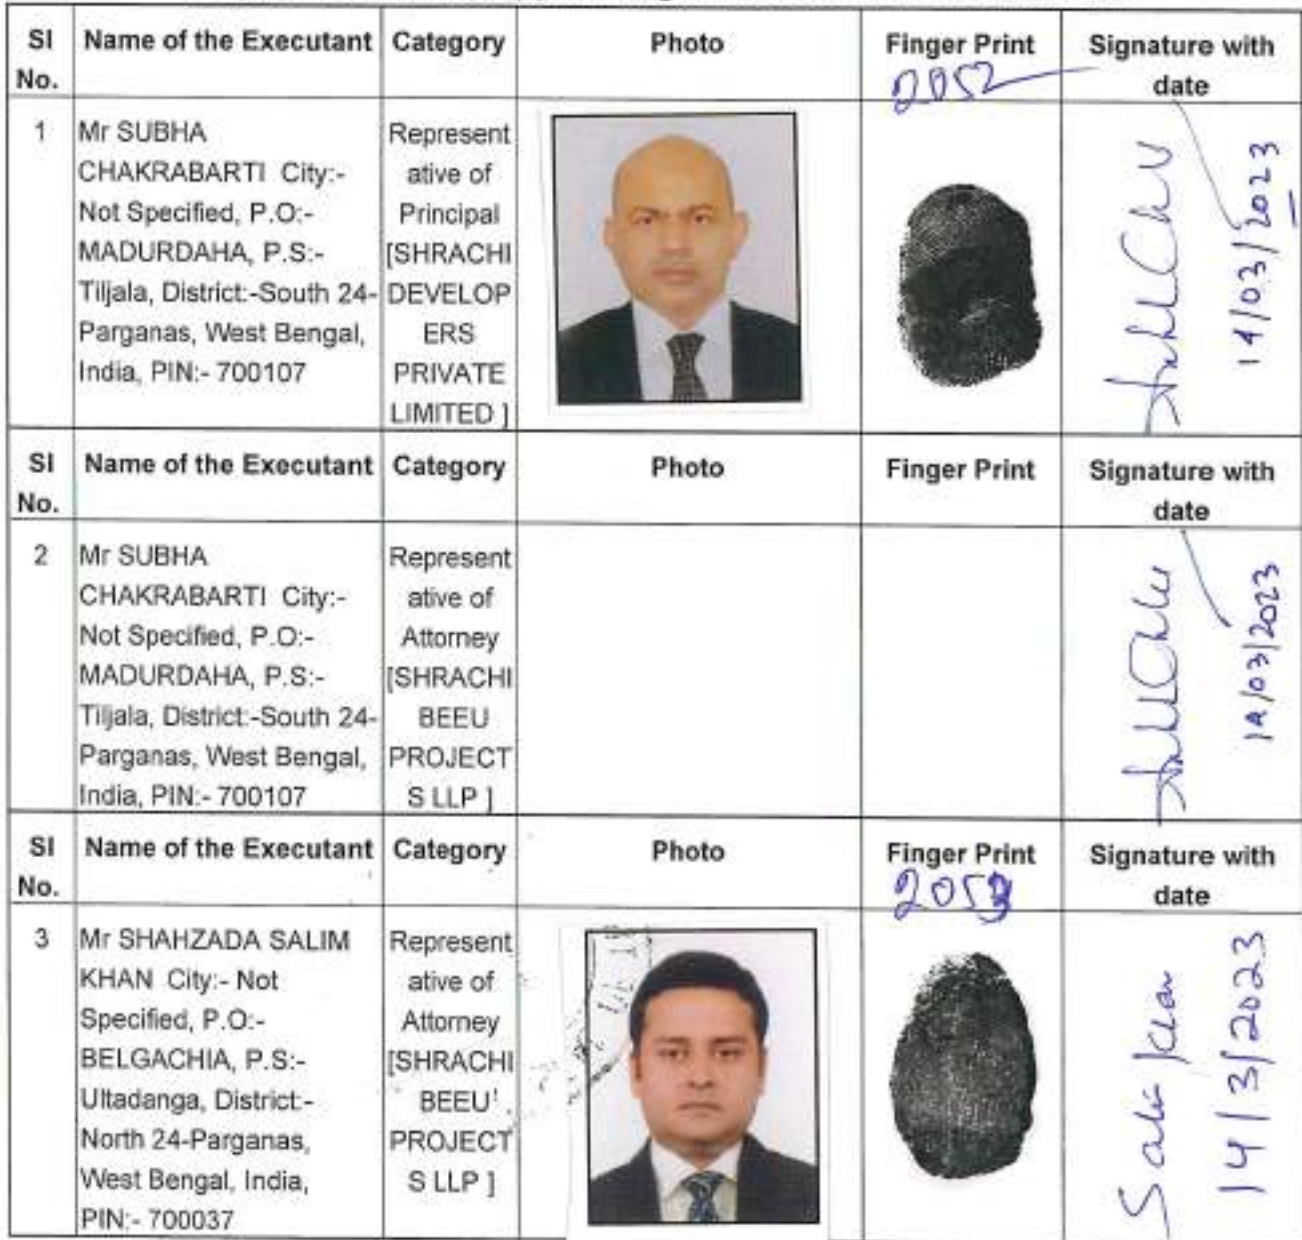 SI No.
Name of the Executant
Category
Photo
Finger Print
Signature with date
2052
1
Mr SUBHA
CHAKRABARTI City:-
Not Specified, P.O:-
MADURDAHA, P.S:-
Tiljala, District:-South 24-
Parganas, West Bengal,
India, PIN:- 700107
Represent
ative of
Principal
[SHRACHI
DEVELOP
ERS
PRIVATE
LIMITED ]
14/03/2023
SI No.
Name of the Executant
Category
Photo
Finger Print
Signature with date
2
Mr SUBHA
CHAKRABARTI City:-
Not Specified, P.O:-
MADURDAHA, P.S:-
Tiljala, District:-South 24-
Parganas, West Bengal,
India, PIN:- 700107
Represent
ative of
Attorney
[SHRACHI
BEEU
PROJECT
S LLP ]
14/03/2023
SI No.
Name of the Executant
Category
Photo
Finger Print
Signature with date
2053
3
Mr SHAHZADA SALIM
KHAN City:- Not
Specified, P.O:-
BELGACHIA, P.S:-
Ultadanga, District:-
North 24-Parganas,
West Bengal, India,
PIN:- 700037
Represent
ative of
Attorney
[SHRACHI
BEEU
PROJECT
S LLP ]
14/3/2023